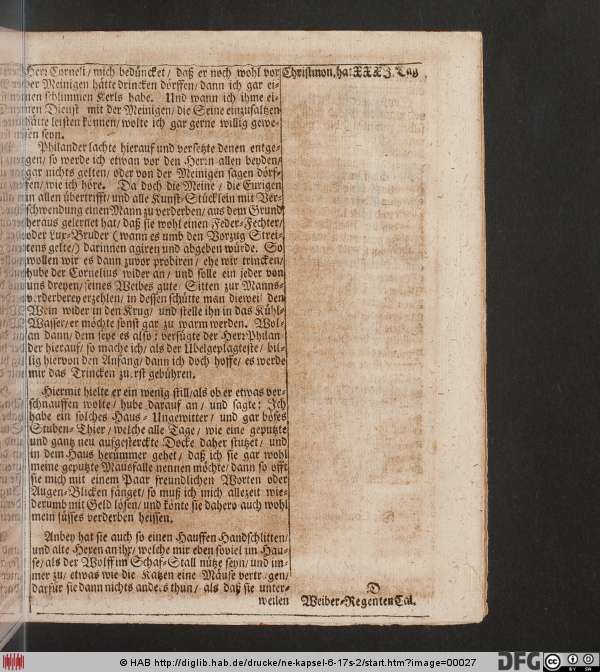 Herr Corneli/ mich bedüncket/ daß er noch wohl vor
der Meinigen hätte drincken dörffen/ dann ich gar ei-
nen schlimmen Kerls habe. Und wann ich ihme ei-
nen Dienst mit der Meinigen/ die Seine einzusaltzen
hätte leisten können/ wolte ich gar gerne willig gewe-
sen seyn.
Philander lachte hierauf und versetzte denen entge-
gen/ so werde ich etwan vor den Herrn allen beyden/
gar nichts gelten/ oder von der Meinigen sagen dörf-
fen/ wie ich höre. Da doch die Meine/ die Eurigen
all übertrifft/ und alle Kunst-Stücklein mit Ver-
schwendung einen Mann zu verderben/ aus dem Grund
heraus gelernet hat/ daß sie wohl einen Feder-Fechter/
oder Lux-Bruder (wann es umb den Vorzug Strei-
tens gelte/) darinnen agiren und abgeben würde. So
wollen wir es dann zuvor probiren/ ehe wir trincken/
hube der Cornelius wider an/ und solle ein jeder von
uns dreyen/ seines Weibes gute Sitten zur Manns-
verderberey erzehlen/ in dessen schütte man dieweil den
Wein wider in den Krug/ und stelle ihn in das Kühl-
Wasser/ er möchte sonst gar zu warm werden. Wol-
an dann/ dem seye es also: versügte der Herr Philan-
der hierauf/ so mache ich/ als der Ubelgeplagteste/ bil-
lig hiervon den Anfang/ dann ich doch hoffe/ es werde
mir das Trincken zu erst gebühren.
Hiermit hielte er ein wenig still/ als ob er etwas ver-
schnauffen wolte/ hube darauf an/ und sagte: Ich
habe ein solches Haus-Ungewitter/ und gar böses
Stuben-Thier/ welche alle Tage/ wie eine geputzte
und gantz neu aufgesterckte Docke daher stutzet/ und
in dem Haus herummer gehet/ daß ich sie gar wohl
meine geputzte Mausfalle nennen möchte/ dann so offt
sie mich mit einem Paar freundlichen Worten oder
Augen-Blicken fänget/ so muß ich mich allezeit wie-
derumb mit Geld lösen/ und könte sie dahero auch wohl
mein süsses verderben heissen.
Anbey hat sie auch so einen Hauffen Handschlitten/
und alte Hexen an ihr/ welche mir eben soviel im Hau-
se/ als der Wolff im Schaf-Stall nütze seyn/ und im-
mer zu/ etwas wie die Katzen eine Mäuse vertragen/
darfür sie dann nichts anders thun/ als daß sie unter-
weilen
Christmon, hat XXXI. Tag
D
Weiber-Regenten Cal.
© HAB http://diglib.hab.de/drucke/ne-kapsel-6-17s-2/start.htm?image=00027
DFG
CC BY SA